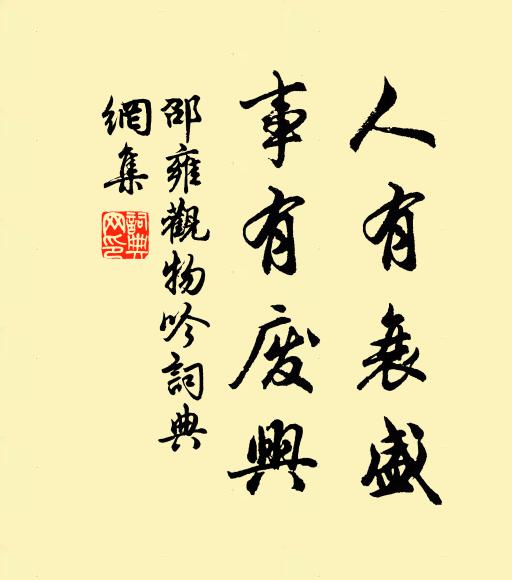 人有衰盛
事有废興
邵雍觀物吟詞典
網集
詞典
网印